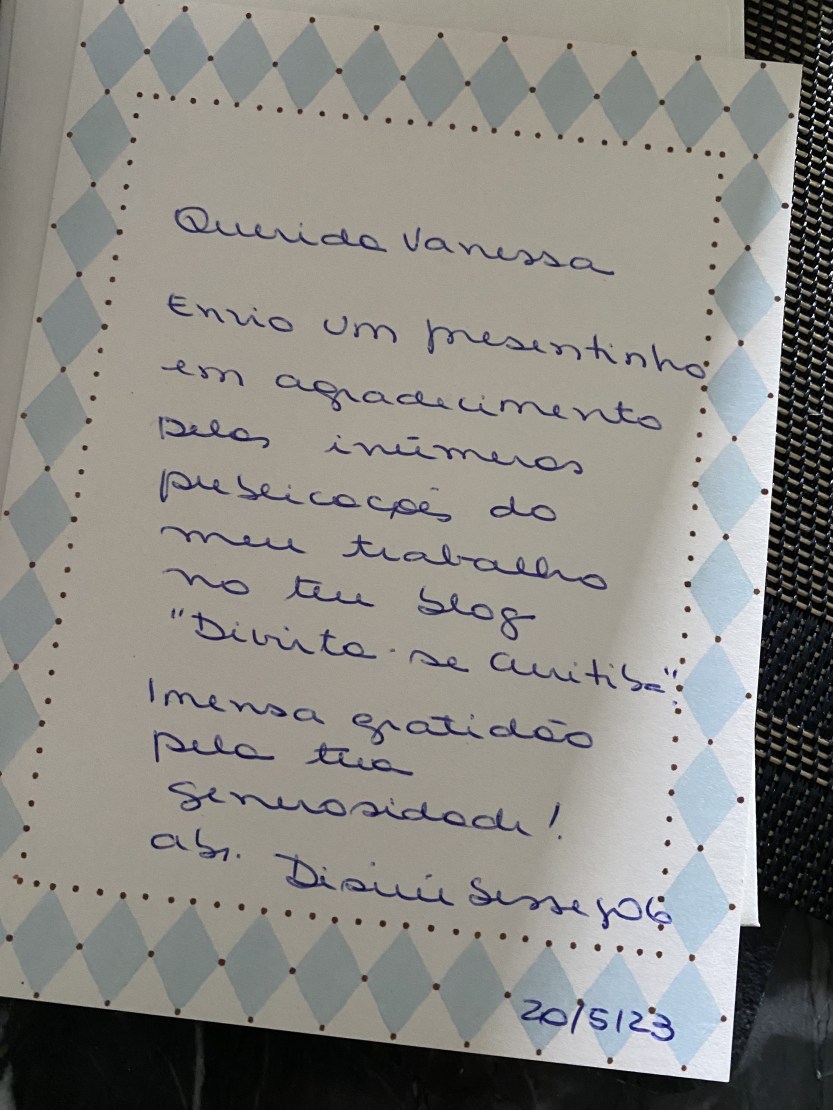 Querida Vanessa
Envio um presentinho
em agradecimento
pelas inúmeras
publicações do
meu trabalho
no teu blog
"Divirta-se Curitiba".
Imensa gratidão
pela tua
generosidade!
abs.
20/5/23